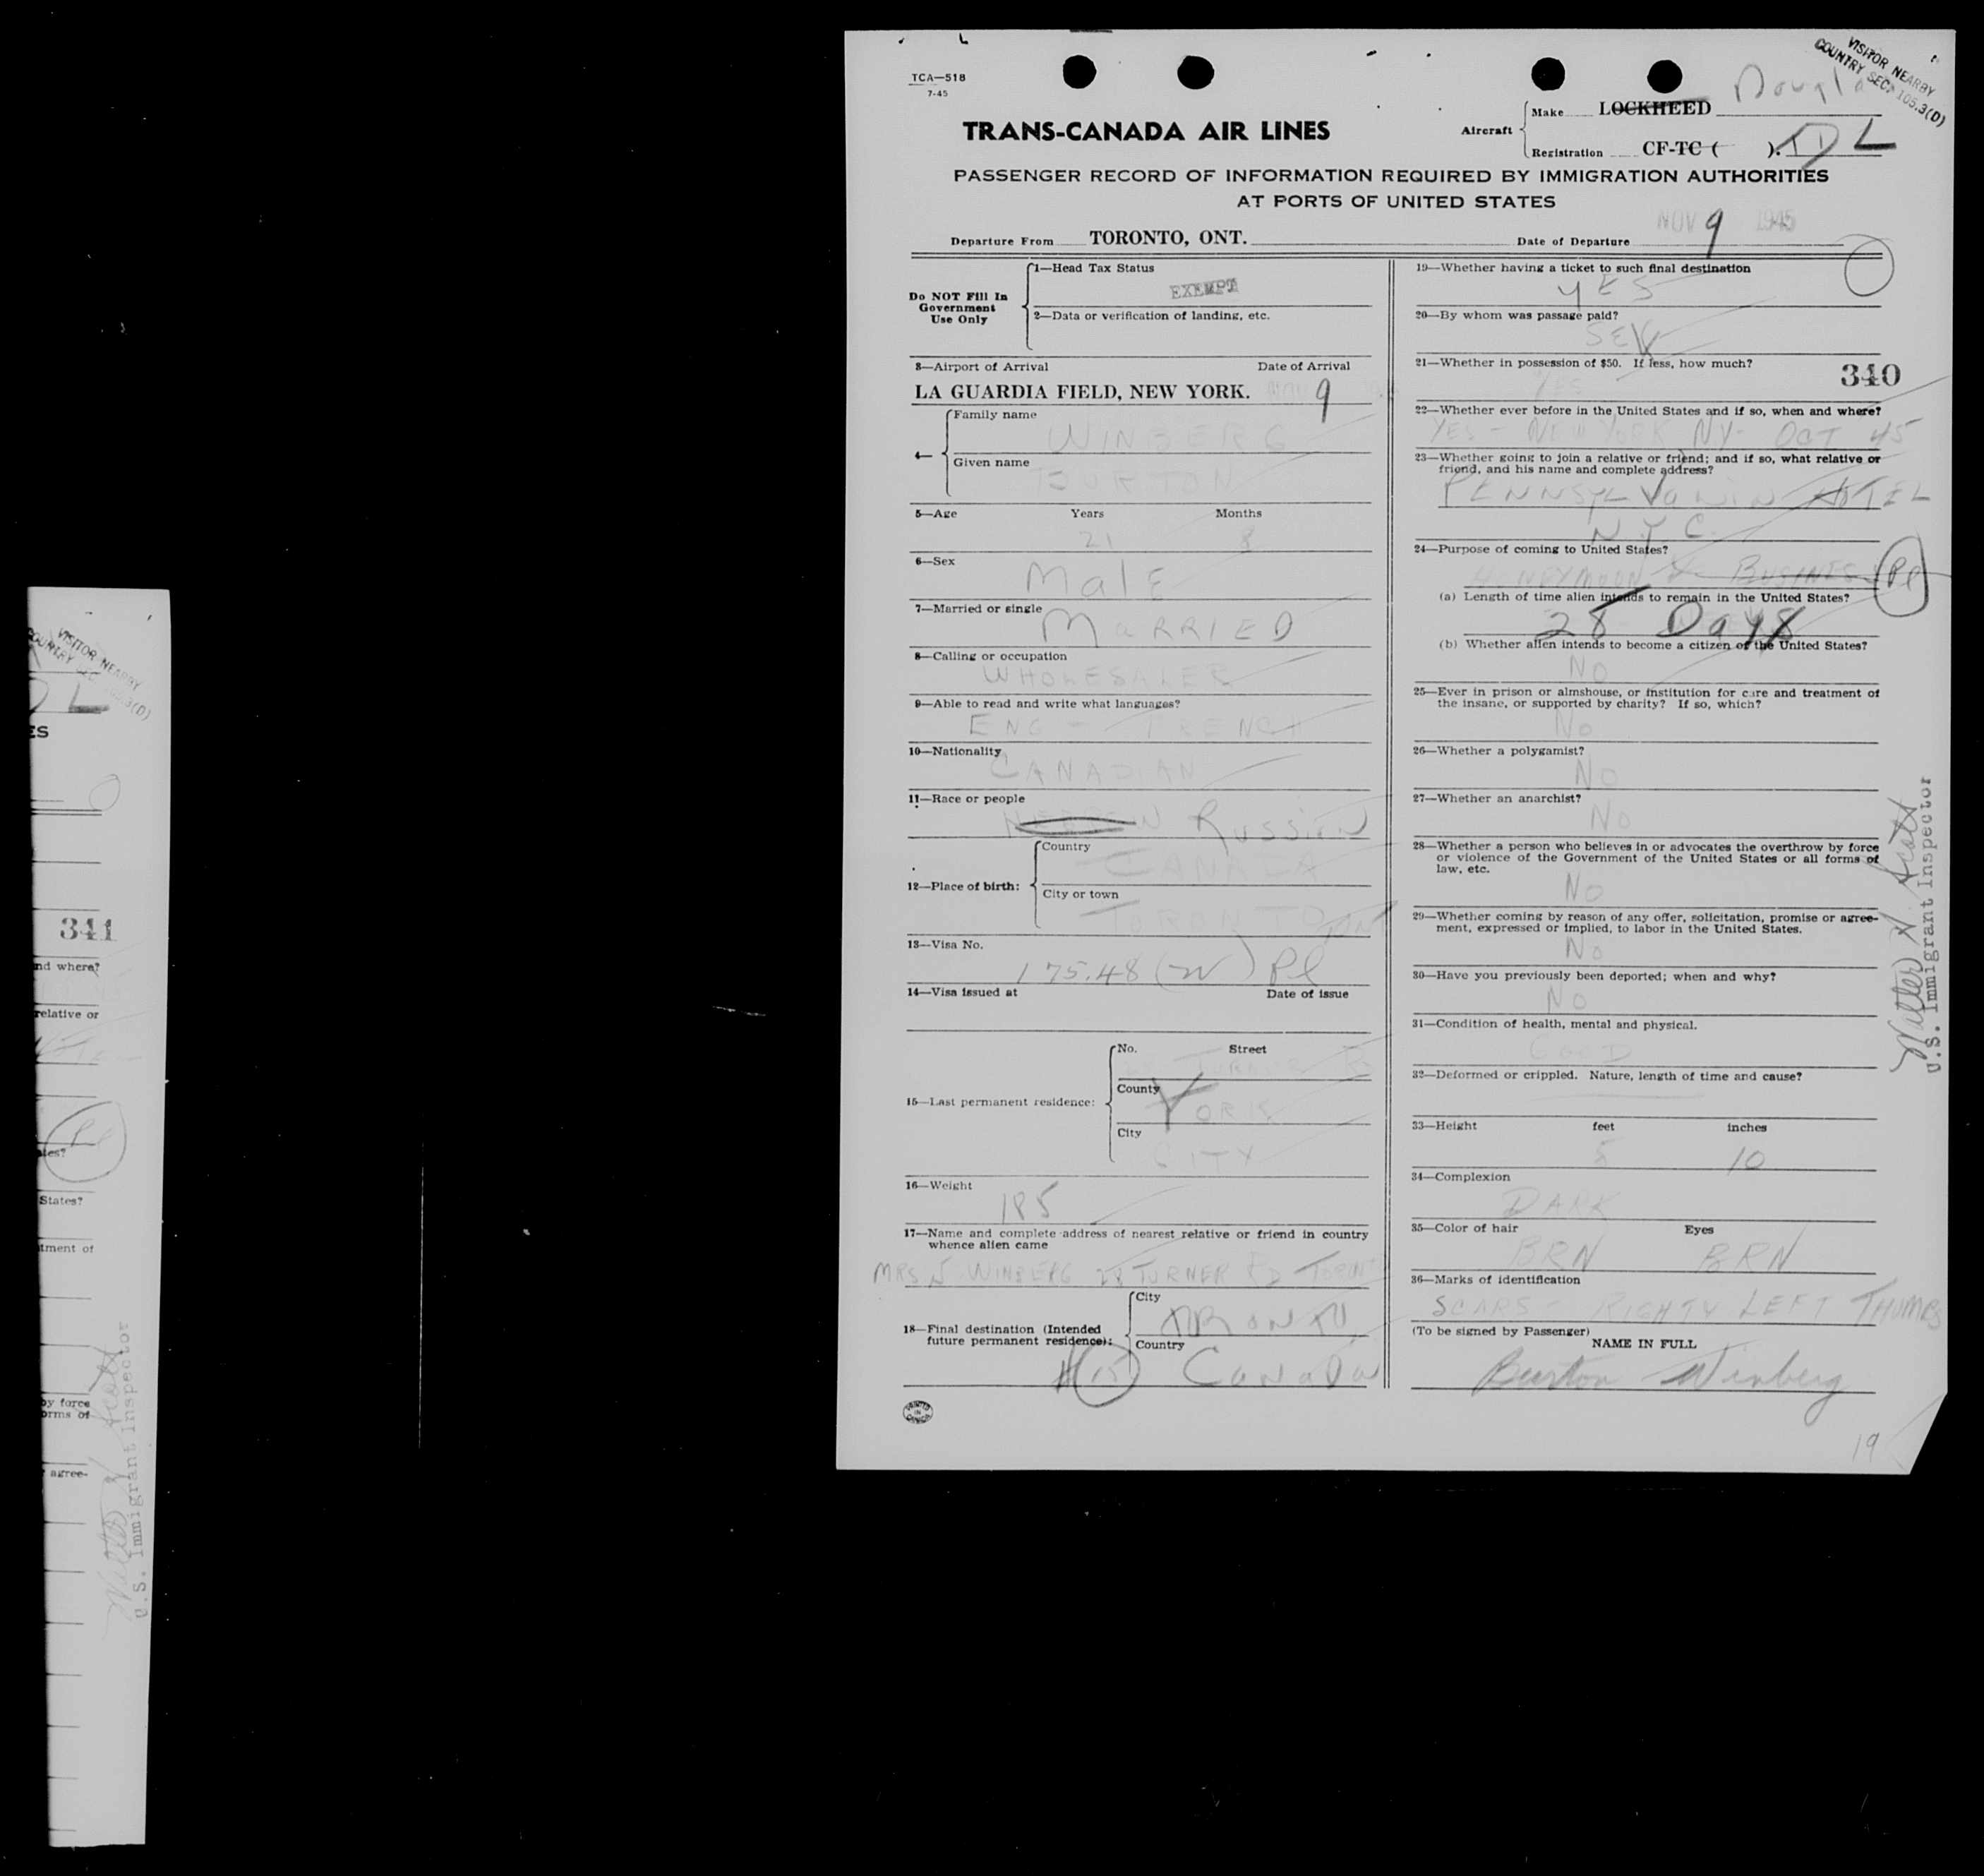 TCA—518
7-45
VISITOR NEARBY
COUNTRY SEC. 105.3(D)
TRANS-CANADA AIR LINES
Aircraft
Make LOCKHEED Douglas
Registration CF-TC ( ). TDL
PASSENGER RECORD OF INFORMATION REQUIRED BY IMMIGRATION AUTHORITIES
AT PORTS OF UNITED STATES
Departure From TORONTO, ONT. Date of Departure NOV 9 1945
Do NOT Fill In
Government
Use Only
1—Head Tax Status
EXEMPT
2—Data or verification of landing, etc.
3—Airport of Arrival Date of Arrival
LA GUARDIA FIELD, NEW YORK. NOV 9
4—
Family name
WINBERG
Given name
BURTON
5—Age Years Months
21 8
6—Sex
MalE
7—Married or single
MaRRIED
8—Calling or occupation
WHOLESALER
9—Able to read and write what languages?
ENG - FRENCH
10—Nationality
CANADIAN
11—Race or people
HEBREW RUSSIAN
12—Place of birth:
Country
CANADA
City or town
TORONTO ONT
13—Visa No.
175.48 (W) Pl
14—Visa issued at Date of issue
15—Last permanent residence:
No. Street
TURNER
County
YORK
City
CITY
16—Weight
185
17—Name and complete address of nearest relative or friend in country
whence alien came
MRS WINBERG TURNER RD TORONTO
18—Final destination (Intended
future permanent residence):
City
TORONTO
Country
(15) CaNaDa
PRINTED
IN
CANADA
19—Whether having a ticket to such final destination
YES
20—By whom was passage paid?
SELF
21—Whether in possession of $50. If less, how much?
340
YES
22—Whether ever before in the United States and if so, when and where?
YES - NEW YORK NY- OCT 45
23—Whether going to join a relative or friend; and if so, what relative or
friend, and his name and complete address?
PENNSYLVaNIA HOTEL
NYC.
24—Purpose of coming to United States?
HONEYMOON & BUSINESS Pl
(a) Length of time alien intends to remain in the United States?
28 Days
(b) Whether alien intends to become a citizen of the United States?
NO
25—Ever in prison or almshouse, or institution for care and treatment of
the insane, or supported by charity? If so, which?
No
26—Whether a polygamist?
No
27—Whether an anarchist?
No
28—Whether a person who believes in or advocates the overthrow by force
or violence of the Government of the United States or all forms of
law, etc.
No
29—Whether coming by reason of any offer, solicitation, promise or agree-
ment, expressed or implied, to labor in the United States.
No
30—Have you previously been deported; when and why?
No
31—Condition of health, mental and physical.
GOOD
32—Deformed or crippled. Nature, length of time and cause?
33—Height feet inches
5 10
34—Complexion
DARK
35—Color of hair Eyes
BRN BRN
36—Marks of identification
SCARS - RIGHT & LEFT THUMBS
(To be signed by Passenger)
NAME IN FULL
Burton Winberg
19
Walter Scott
U.S. Immigrant Inspector
VISITOR NEARBY
COUNTRY SEC. 105.3(D)
DL
ES
341
nd where?
relative or
Pl
ates?
States?
tment of
by force
orms of
agree-
Walter Scott
U.S. Immigrant Inspector